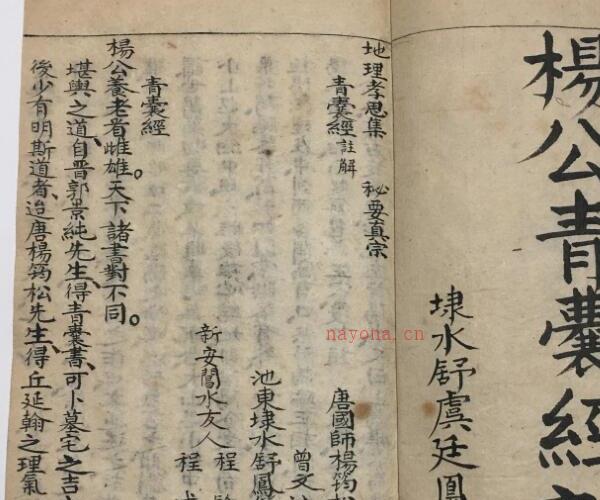 楊公青囊經
埭水舒虞廷鳳
地理孝思集 秘要真宗
青囊經註解
唐國師楊筠松
曾文
池東埭水舒鳳
新安閶水友人 程
程
青囊經
楊公養老看雌雄。天下諸書對不同。
堪輿之道、自晋郭景純先生、得青囊書、可卜墓宅之吉
後少有明斯道者、迨唐楊筠松先生、得丘延翰之理氣
nayona.cn